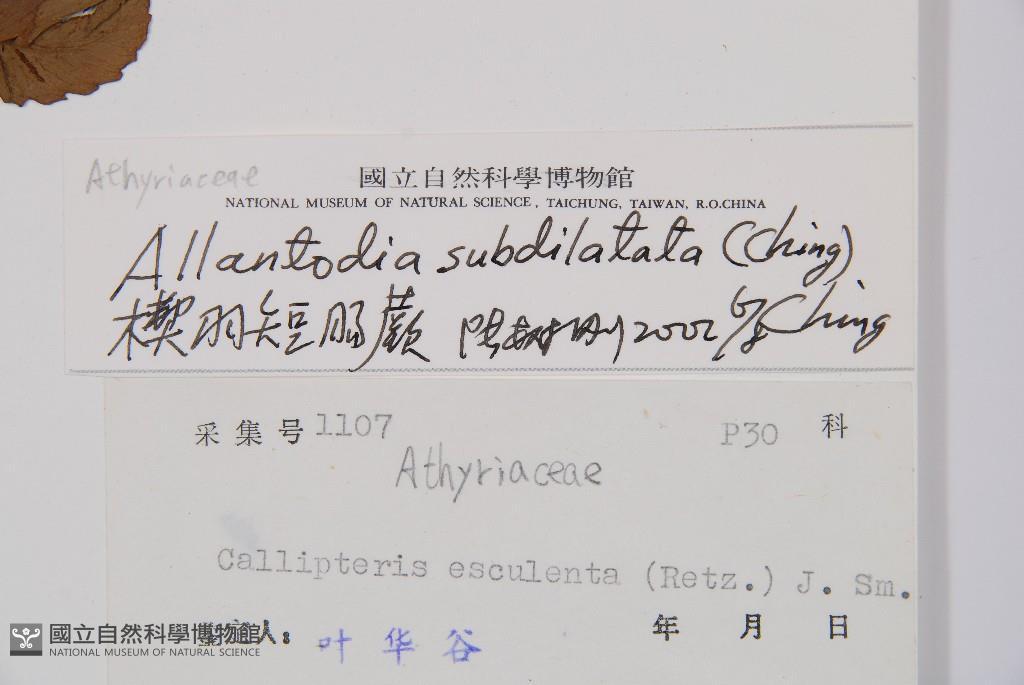 Athyriaceae
國立自然科學博物館
NATIONAL MUSEUM OF NATURAL SCIENCE, TAICHUNG, TAIWAN, R.O.CHINA
Allantodia subdilatata (Ching)
Ching
楔羽短腸蕨 2002 6/8
采集号 1107 P30 科
Athyriaceae
Callipteris esculenta (Retz.) J. Sm.
人: 叶华谷 年 月 日
國立自然科學博物館
NATIONAL MUSEUM OF NATURAL SCIENCE